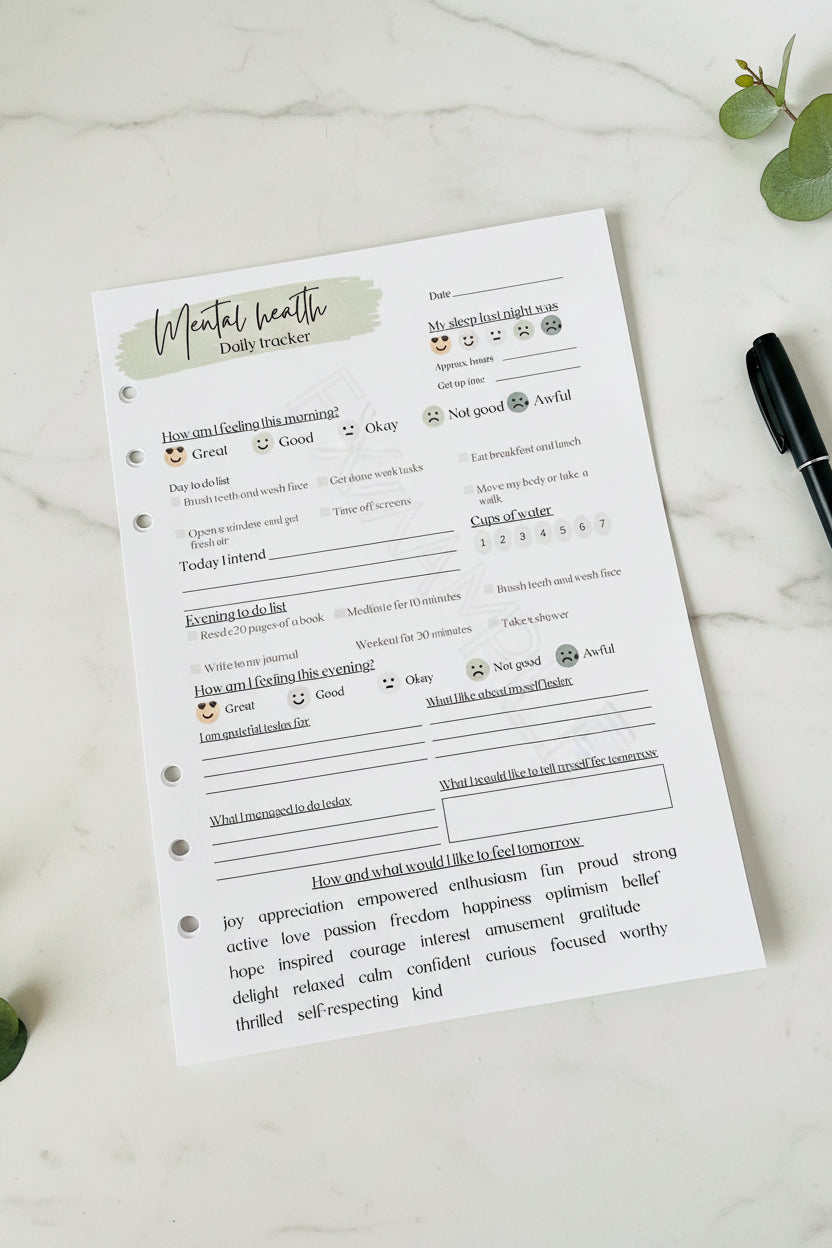 Mental health
Daily tracker
Date
My sleep last night was
Approx. hours
Get up time
How am I feeling this morning?
Great Good Okay Not good Awful
Day to do list
Brush teeth and wash face
Get done work tasks
Eat breakfast and lunch
Open a window and get
fresh air
Time off screens
Move my body or take a
walk
Cups of water
1 2 3 4 5 6 7
Today I intend
Evening to do list
Read 20 pages of a book
Meditate for 10 minutes
Brush teeth and wash face
Write to my journal
for 30 minutes
Take a shower
How am I feeling this evening?
Great Good Okay Not good Awful
I am grateful today for
What I like about myself today
What I managed to do today
What I would like to tell myself for tomorrow
How and what would I like to feel tomorrow
joy appreciation empowered enthusiasm fun proud strong
active love passion freedom happiness optimism belief
hope inspired courage interest amusement gratitude
delight relaxed calm confident curious focused worthy
thrilled self-respecting kind